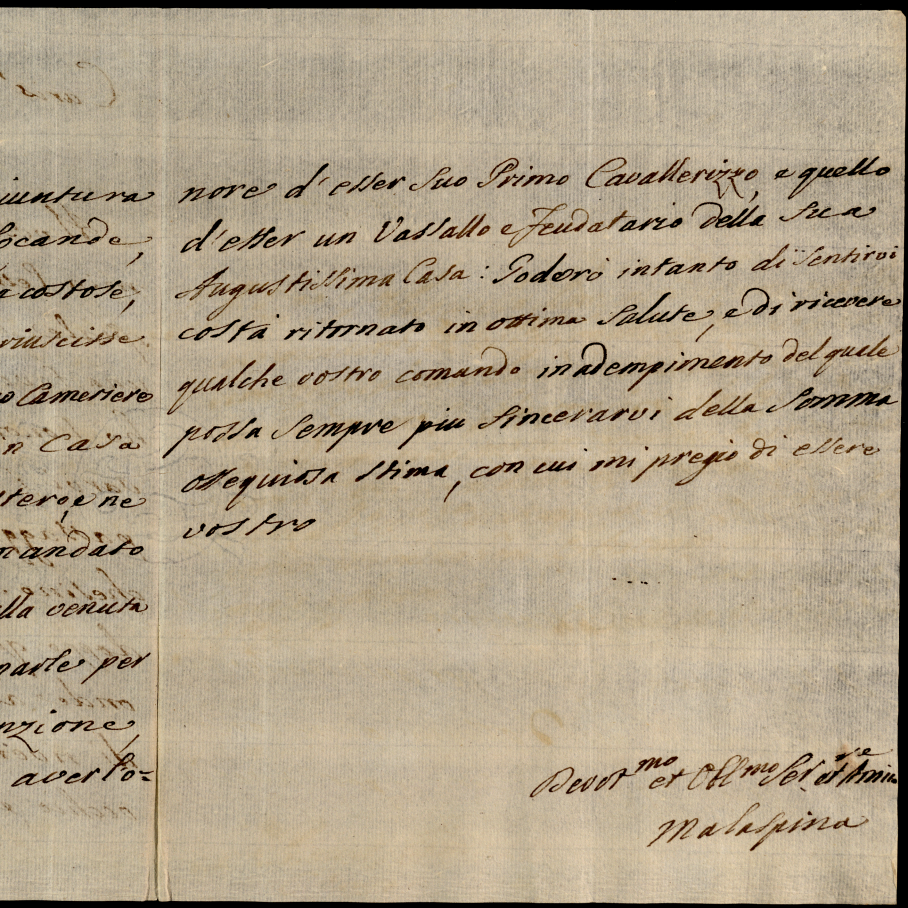 iuntura
locande,
e costose,
riuscisse
o Cameriere
n Casa
stero, e ne
mandato
lla venuta
marle per
nzione,
aver l'o=
nore d'esser suo Primo Cavallerizzo, e quello
d'esser un Vassallo e Feudatario della sua
Augustissima Casa: Goderò intanto di sentirvi
costà ritornato in ottima salute, e di ricevere
qualche vostro comando in adempimento del quale
possa sempre piu sincerarvi della somma
ossequiosa stima, con cui mi pregio di essere
vostro
Devot.mo et Obl.mo Ser.re et Amico
Malaspina